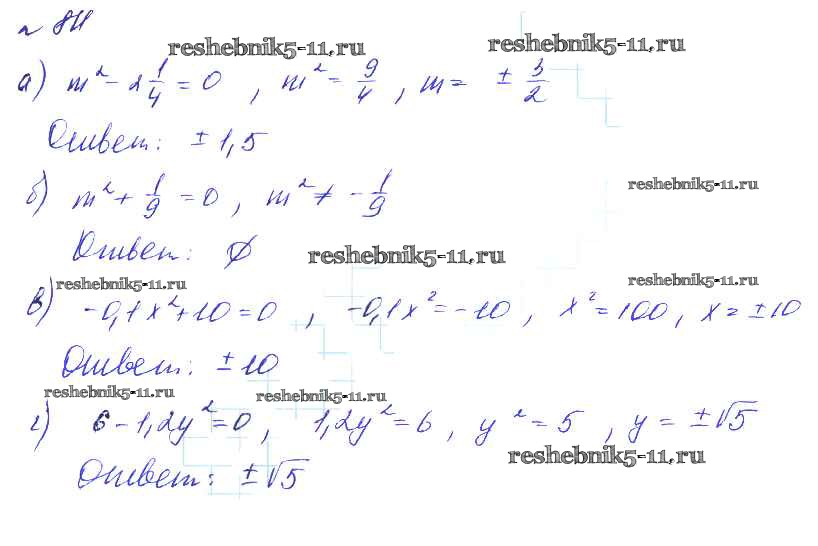 № 811
reshebnik5-11.ru reshebnik5-11.ru
а) m² - 2 1/4 = 0 , m² = 9/4 , m = ± 3/2
Ответ: ± 1,5
б) m² + 1/9 = 0 , m² ≠ - 1/9
reshebnik5-11.ru
Ответ: ∅ reshebnik5-11.ru
reshebnik5-11.ru reshebnik5-11.ru
в) -0,1x² + 10 = 0 , -0,1x² = -10 , x² = 100 , x = ± 10
Ответ: ± 10
reshebnik5-11.ru reshebnik5-11.ru
г) 6 - 1,2y² = 0 , 1,2y² = 6 , y² = 5 , y = ±√5
reshebnik5-11.ru
Ответ: ±√5